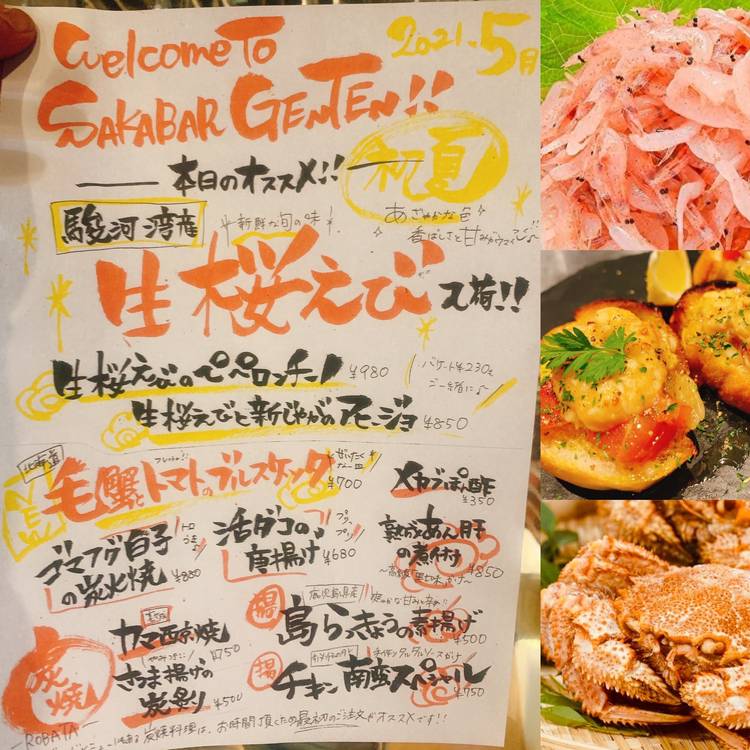 Welcome To
2021.5月
SAKABAR GENTEN!!
本日のオススメ!!
初夏
駿河湾産
新鮮な旬の味!
あざやかな色
香ばしさと甘みが
生桜えび入荷!!
生桜えびのペペロンチーノ ¥980
バゲット¥230と
ご一緒に♪
生桜えびと新じゃがのアヒージョ ¥850
北海道
NEW
毛蟹とトマトのブルスケッタ
ぜいたくな一皿
¥700
メカブぽん酢
¥350
ゴマフグ白子
の炭火焼 ¥880
トロうま♪
活ダコの
唐揚げ ¥680
プリップリ
熟成あん肝
の煮付 ¥850
炭焼
ROBATA
カマ西京焼
¥750
さつま揚げの
炭炙り ¥500
揚
鹿児島県産
爽やかな甘みと辛み!!
島らっきょうの素揚げ
¥500
揚
手作りタルタルソースがけ
チキン南蛮スペシャル
¥750
炭焼料理は、お時間頂くため最初のご注文がオススメです!!